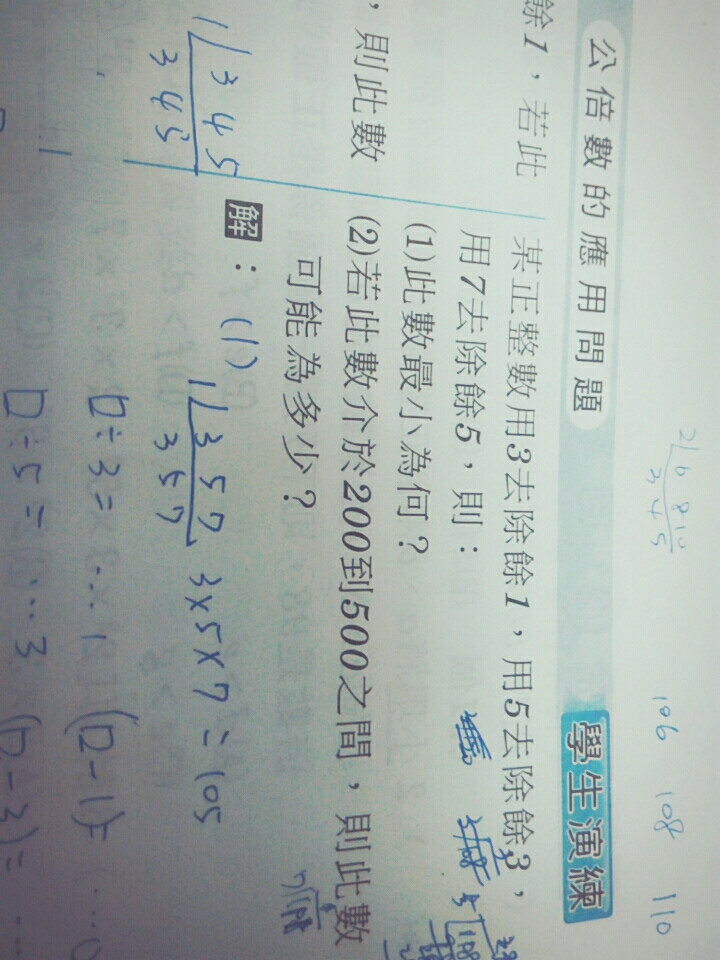 公倍數的應用問題
學生演練
餘1，若此
，則此數
某正整數用3去除餘1，用5去除餘3，
用7去除餘5，則：
(1)此數最小為何？
(2)若此數介於200到500之間，則此數
可能為多少？
解：(1)
1 3 5 7 3×5×7=105
3 5 7
1 3 4 5
3 4 5
2 6 8 10
3 4 5
106 108 110
□÷3=…1 (□-1)÷
□÷5=…3 (□-3)=…